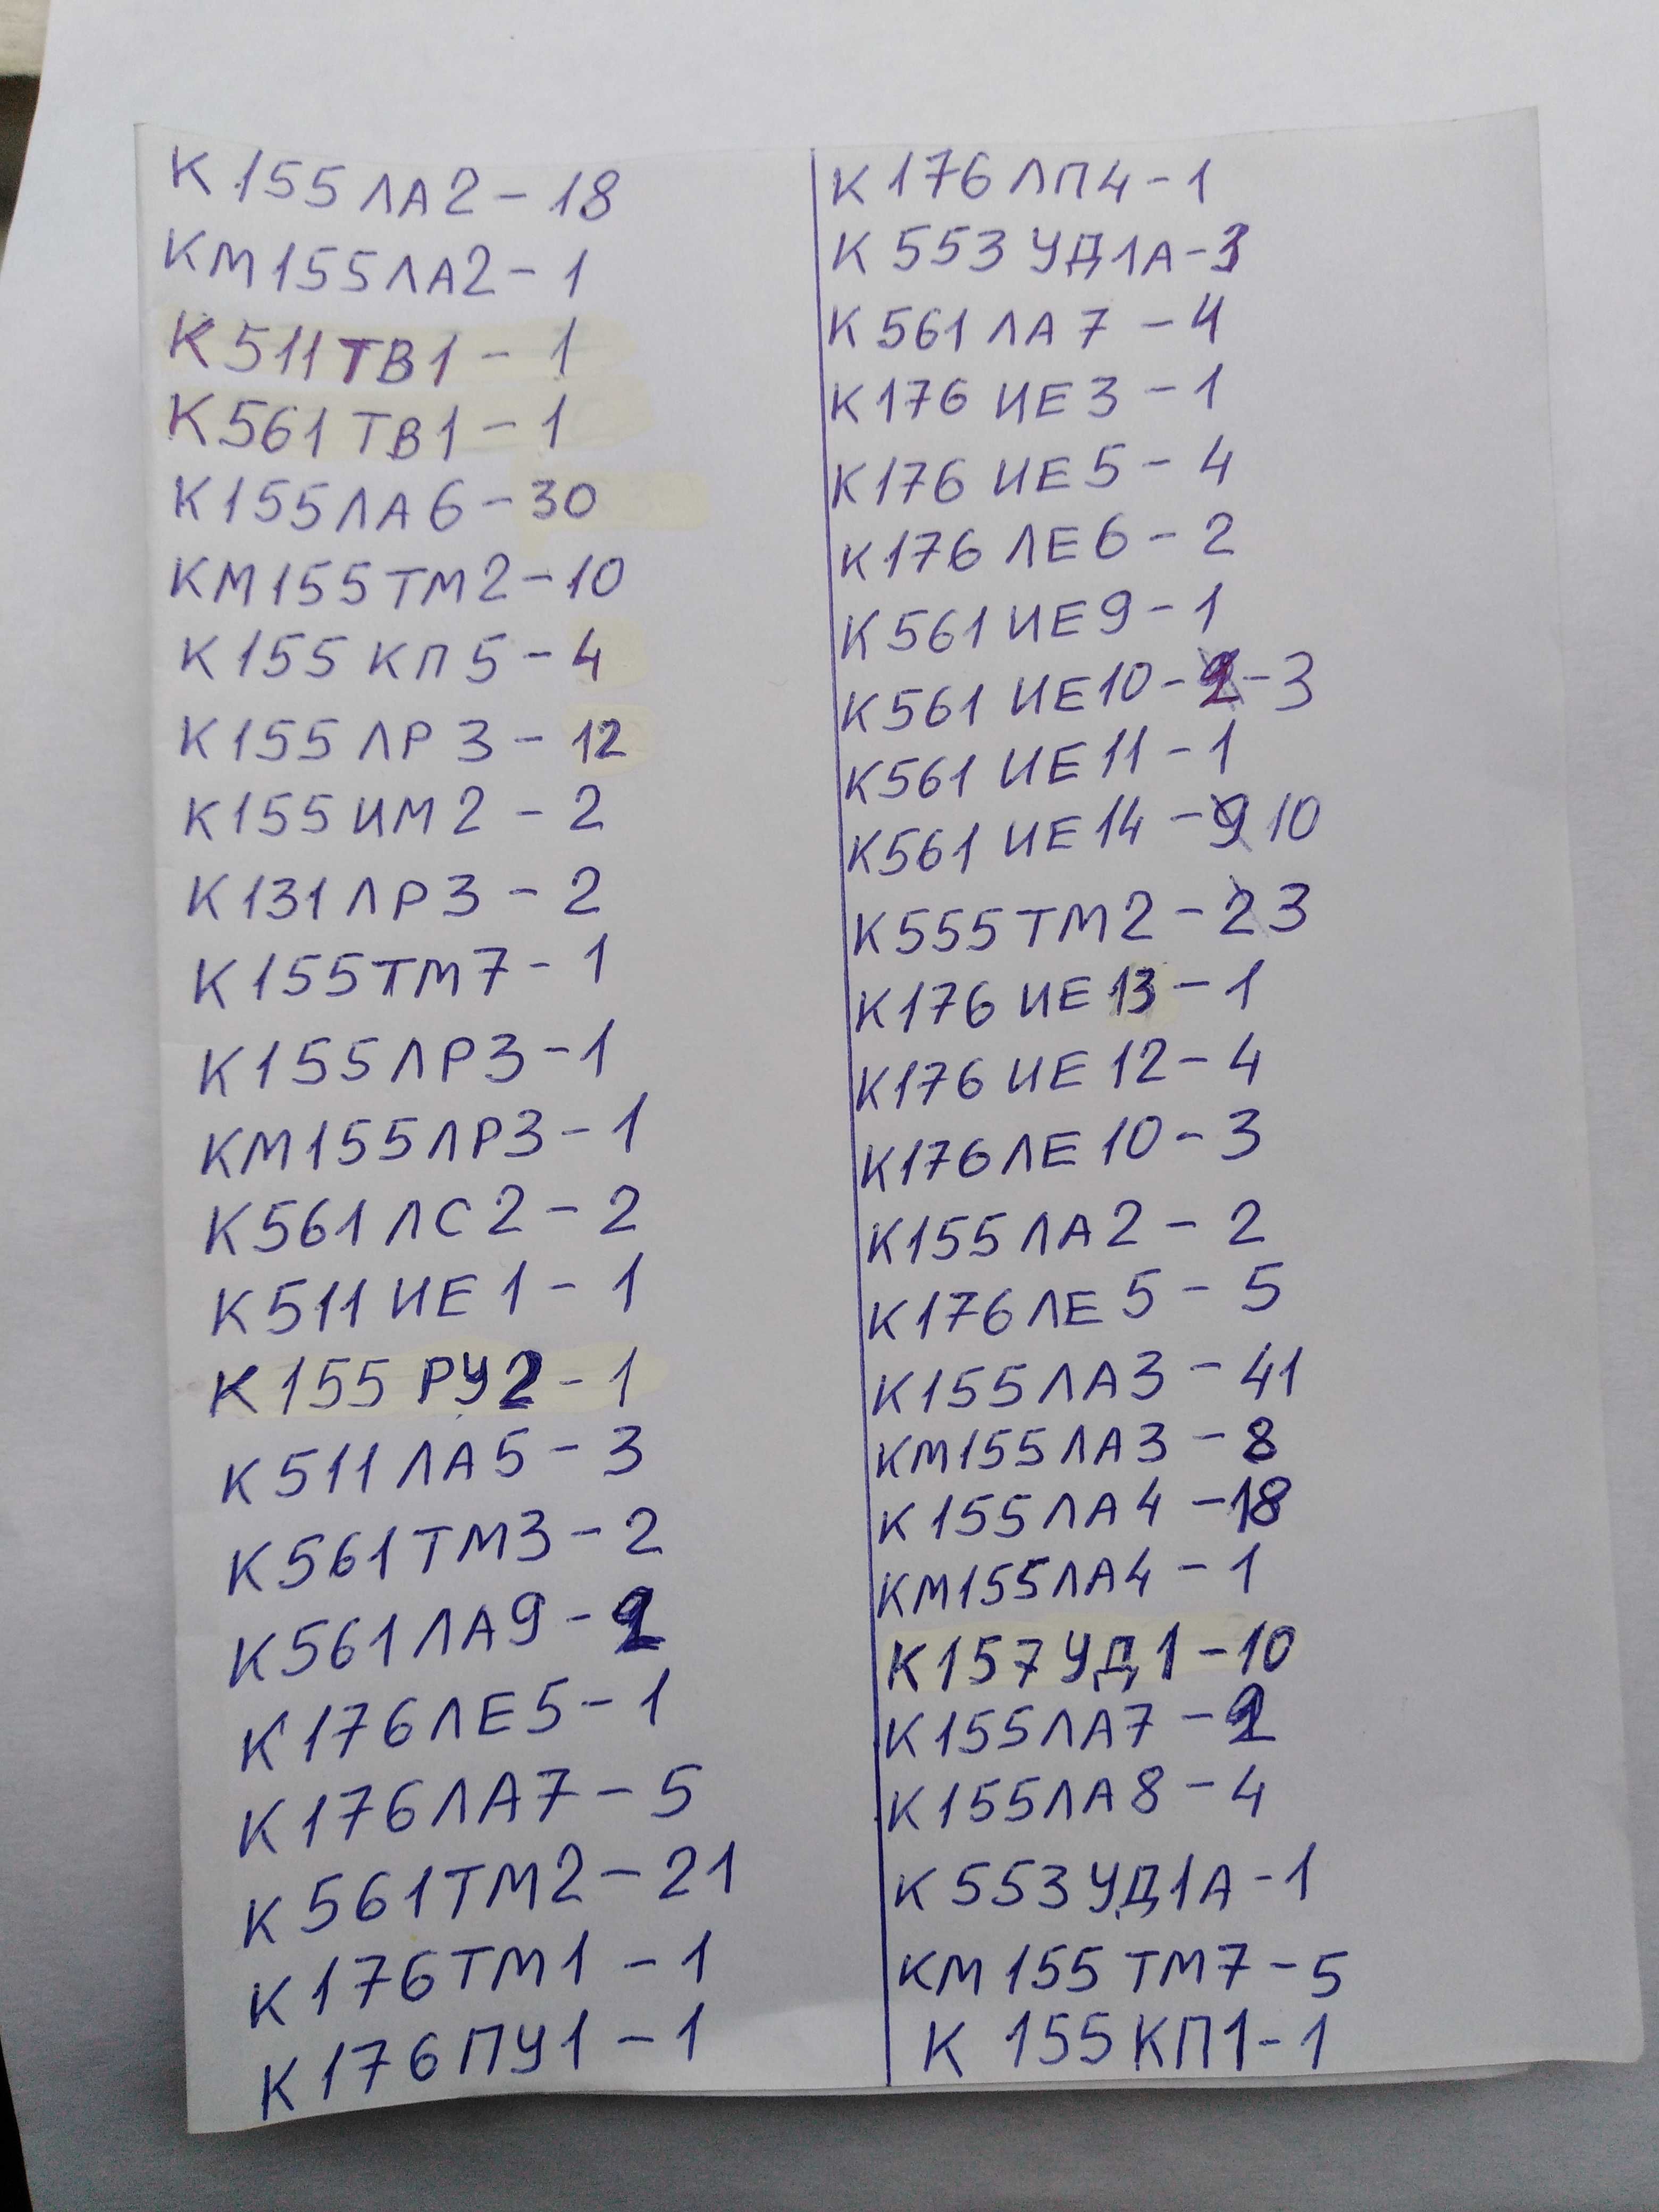 К155ЛА2-18
КМ155ЛА2-1
К511ТВ1-1
К561ТВ1-1
К155ЛА6-30
КМ155ТМ2-10
К155КП5-4
К155ЛР3-12
К155ИМ2-2
К131ЛР3-2
К155ТМ7-1
К155ЛР3-1
КМ155ЛР3-1
К561ЛС2-2
К511ИЕ1-1
К155РУ2-1
К511ЛА5-3
К561ТМ3-2
К561ЛА9-2
К176ЛЕ5-1
К176ЛА7-5
К561ТМ2-21
К176ТМ1-1
К176ПУ1-1
К176ЛП4-1
К553УД1А-3
К561ЛА7-4
К176ИЕ3-1
К176ИЕ5-4
К176ЛЕ6-2
К561ИЕ9-1
К561ИЕ10-3
К561ИЕ11-1
К561ИЕ14-10
К555ТМ2-3
К176ИЕ13-1
К176ИЕ12-4
К176ЛЕ10-3
К155ЛА2-2
К176ЛЕ5-5
К155ЛА3-41
КМ155ЛА3-8
К155ЛА4-18
КМ155ЛА4-1
К157УД1-10
К155ЛА7-2
К155ЛА8-4
К553УД1А-1
КМ155ТМ7-5
К 155КП1-1